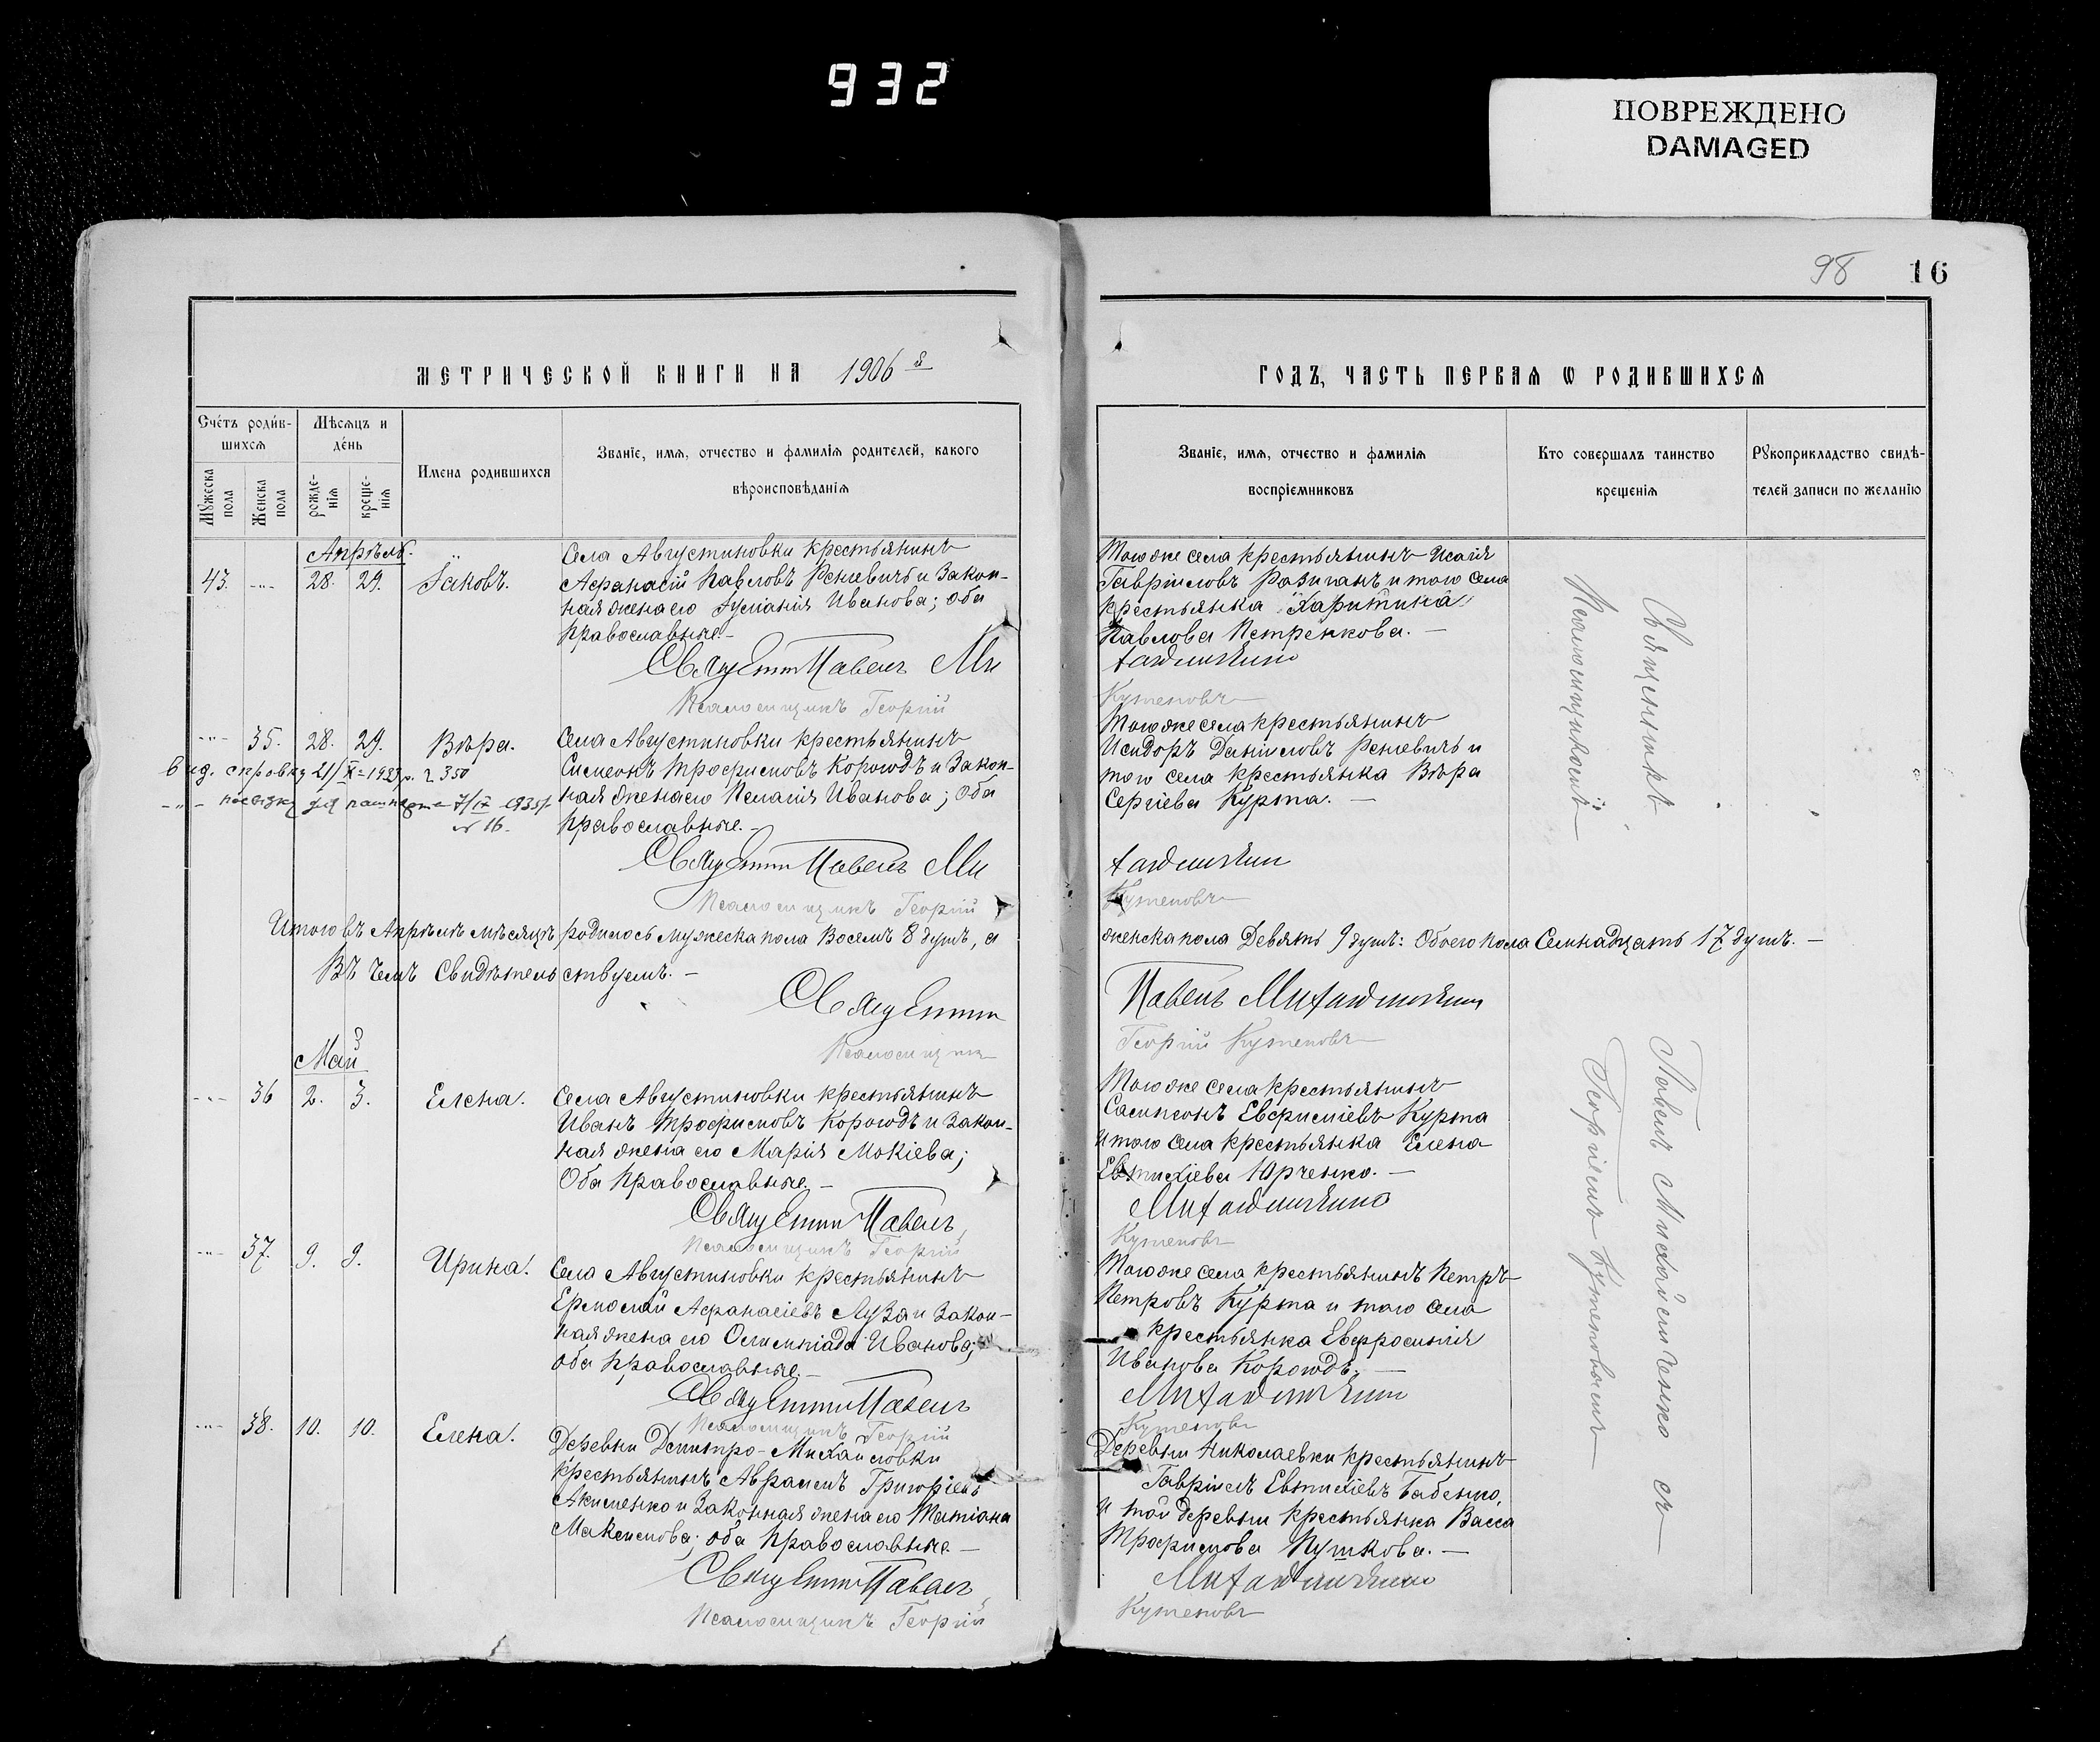 932
ПОВРЕЖДЕНО
DAMAGED
98 16
МЕТРИЧЕСКОЙ КНИГИ НА 1906 й
ГОДЪ, ЧАСТЬ ПЕРВАЯ Ѡ РОДИВШИХСЯ
Счетъ родив-
шихся
Мужеска пола
Женска пола
Мѣсяцъ и
день
рожде-
нія
креще-
нія
Имена родившихся
Званіе, имя, отчество и фамилія родителей, какого
вѣроисповѣданія
Званіе, имя, отчество и фамилія
воспріемниковъ
Кто совершалъ таинство
крещенія
Рукоприкладство свидѣ-
телей записи по желанію
Апрѣль.
43. -"- 28. 29. Іаковъ.
Села Августиновки крестьянинъ
Афанасій Павловъ Реневичъ и закон-
ная жена его Іуліанія Иванова; оба
православные.-
Священникъ Павелъ Ми
Псаломщикъ Георгій
Того же села крестьянинъ Исаія
Гавріиловъ Розиганъ и того села
крестьянка Харитина
Павлова Петренкова. -
хайличенко
Кутеповъ
-"- 35. 28. 29. Вѣра.
выд. справку 21/X-1923 г. 350
-"- паспорта 7/IX 1935 г.
№ 16.
Села Августиновки крестьянинъ
Симеонъ Трофимовъ Корогодъ и закон-
ная жена его Пелагія Иванова; оба
православные. -
Священникъ Павелъ Ми
Псаломщикъ Георгій
Того же села крестьянинъ
Исидоръ Даніиловъ Реневичъ и
того села крестьянка Вѣра
Сергіева Курта. -
хайличенко
Кутеповъ
Итого въ Апрѣлѣ мѣсяцѣ родилось мужеска пола Восемь 8 душъ, а
женска пола Девять 9 душъ: Обоего пола Семнадцать 17 душъ. -
Въ чемъ Свидѣтельствуемъ. -
Священникъ
Павелъ Михайличенко
Псаломщикъ
Георгій Кутеповъ
Май
-"- 36 2. 3. Елена.
Села Августиновки крестьянинъ
Иванъ Трофимовъ Корогодъ и закон-
ная жена его Марія Мокіева;
Оба православные. -
Священникъ Павелъ
Псаломщикъ Георгій
Того же села крестьянинъ
Сампсонъ Евфиміевъ Курта
и того села крестьянка Елена
Евтихіева Юрченко. -
Михайличенко
Кутеповъ
-"- 37. 9. 9. Ирина.
Села Августиновки крестьянинъ
Ермолай Афанасіевъ Луза и закон-
ная жена его Олимпіада Иванова;
оба православные. -
Священникъ Павелъ
Псаломщикъ Георгій
Того же села крестьянинъ Петръ
Петровъ Курта и того села
крестьянка Евфросинія
Иванова Корогодъ. -
Михайличенко
Кутеповъ
-"- 38. 10. 10. Елена.
Деревни Дмитро-Михайловки
крестьянинъ Аврамъ Григоріевъ
Акименко и законная жена его Татіана
Максимова; оба православные. -
Священникъ Павелъ
Псаломщикъ Георгій
Деревни Николаевки крестьянинъ
Гавріилъ Евтихіевъ Бабенко,
и той деревни крестьянка Васса
Трофимова Пушкова. -
Михайличенко
Кутеповъ
Священникъ Павелъ Михайличенко съ
Псаломщикомъ Георгіемъ Кутеповымъ